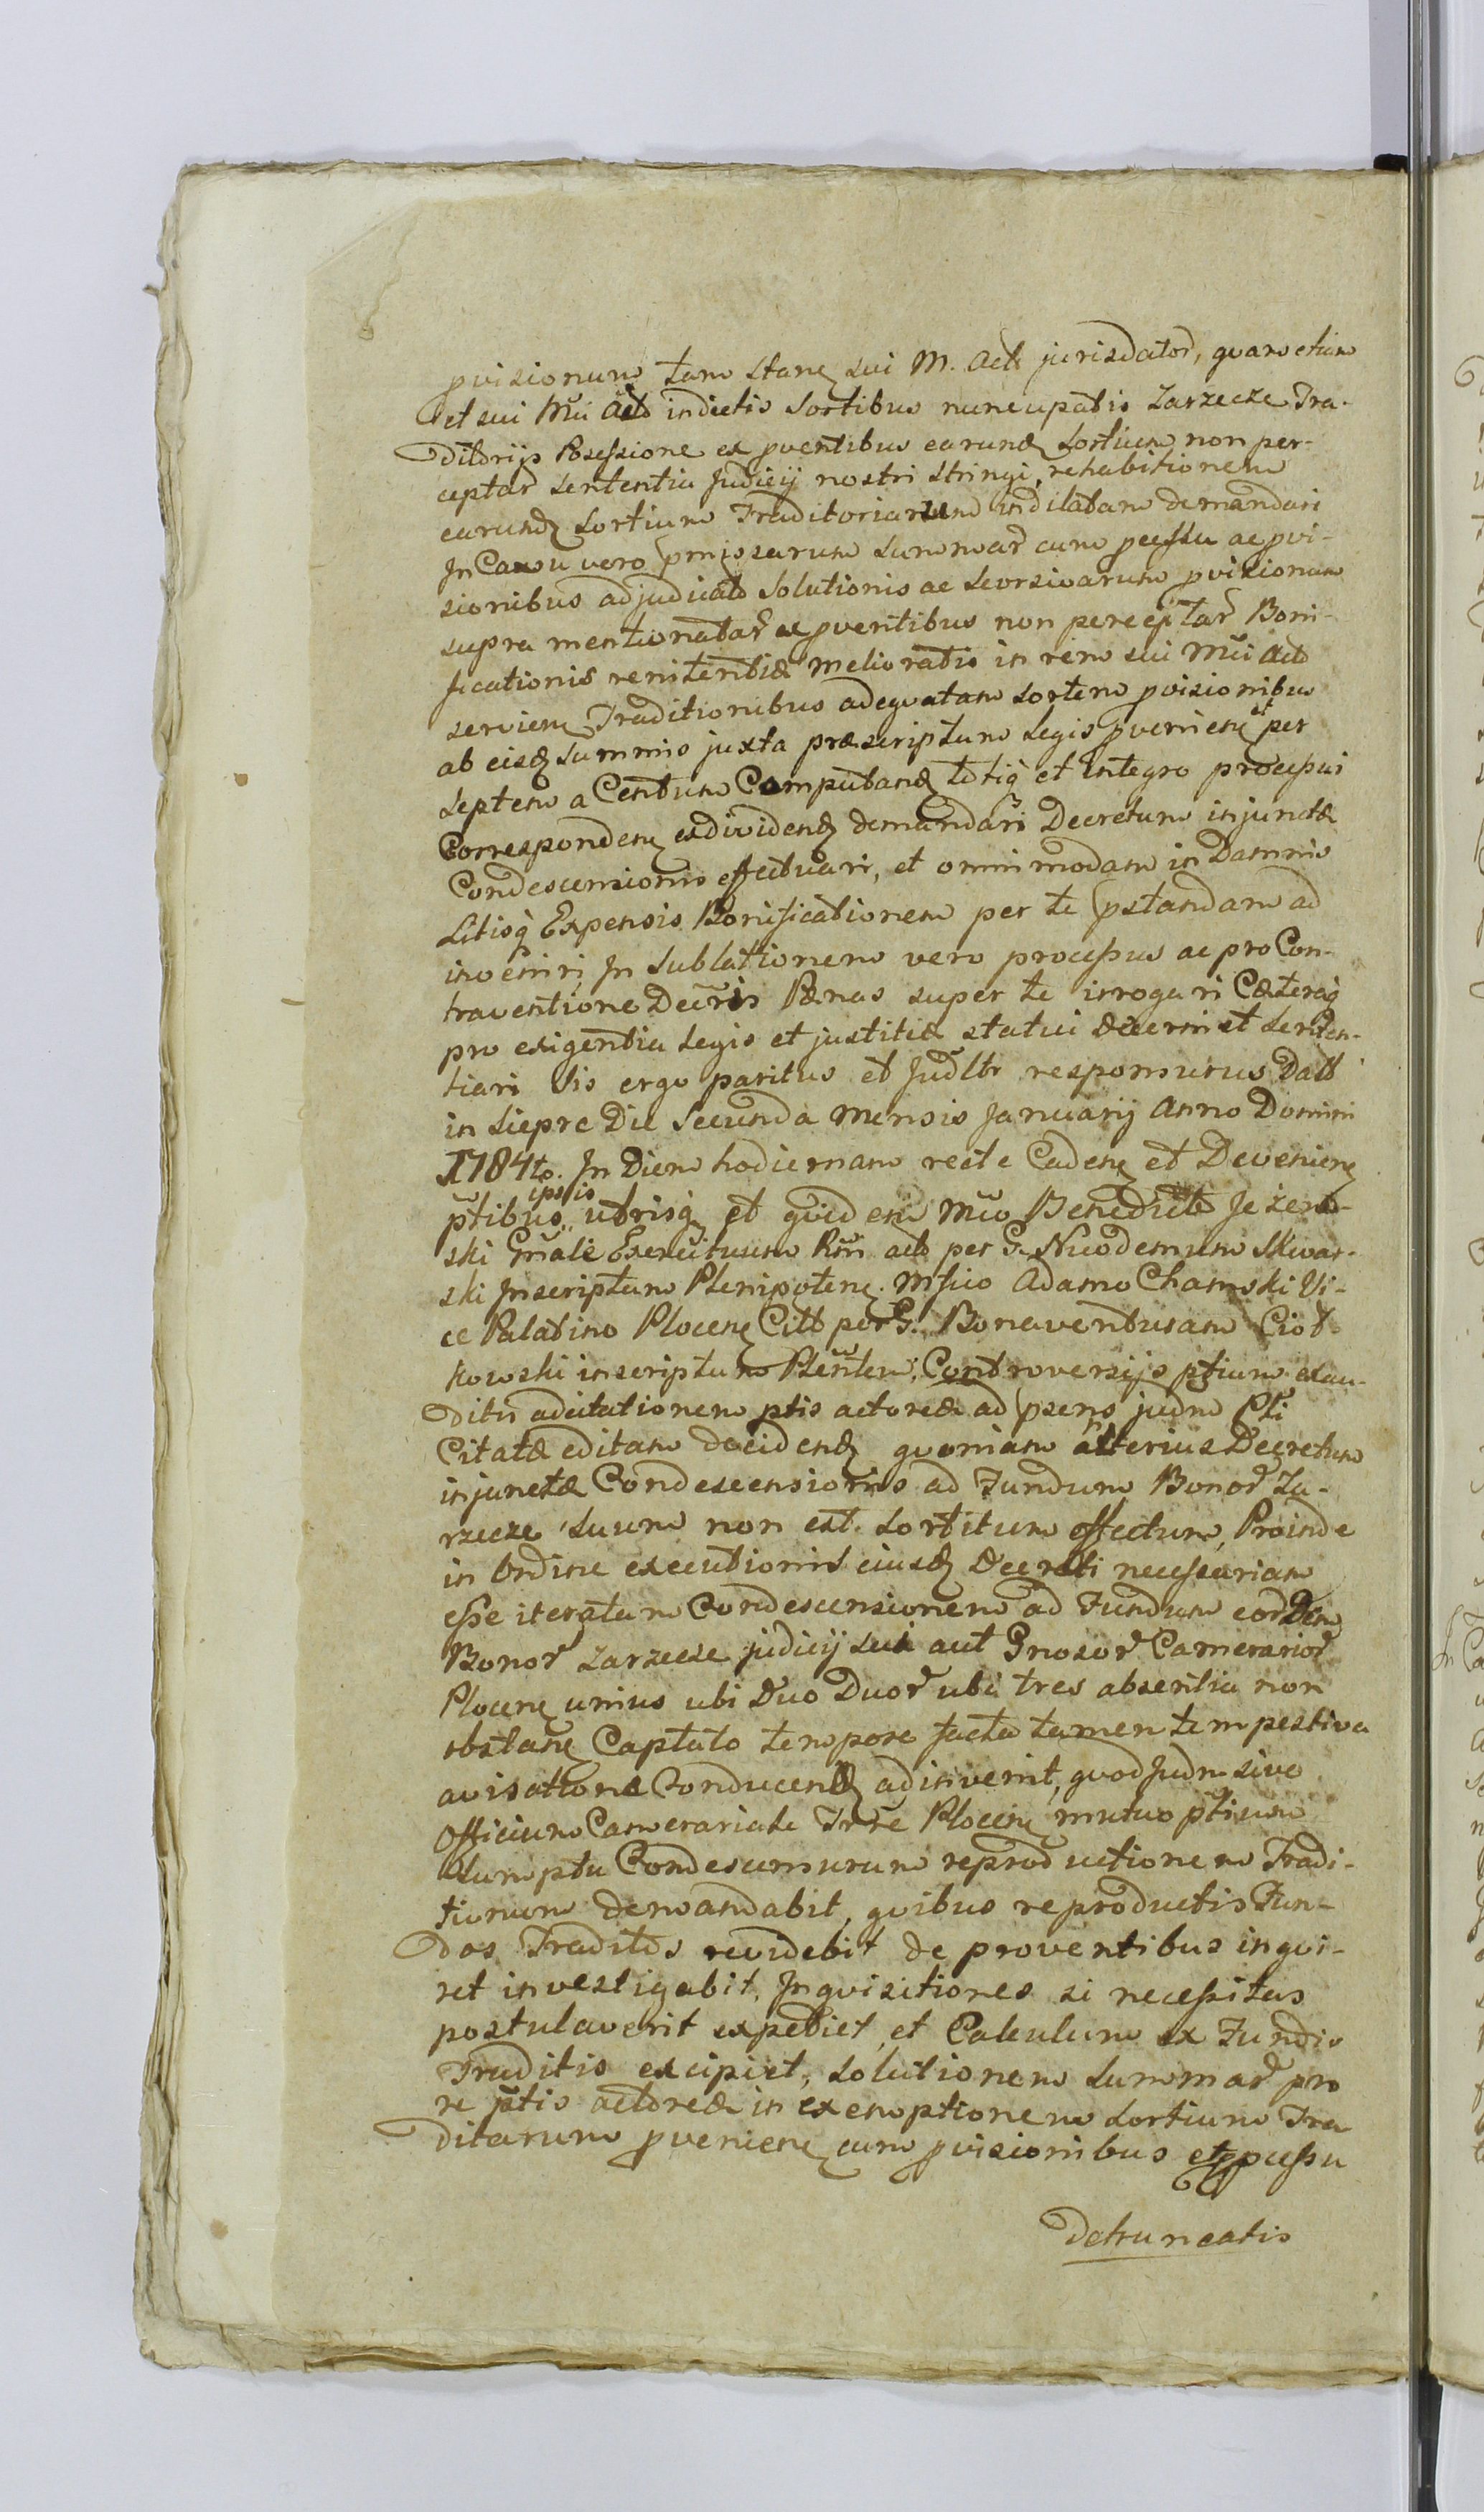 pvisionum tam stanę sui M. Actt jurisdatoř, quam etiam
et sui Mui Actt in dictis sortibus nuncupatis Zarzecze Tra-
ditorijs Possessione ex pventibus earundę sortium non per-
ceptař Sententia Judicij nostri stringi, rehabitionem
earundę Sortium Traditoriarum indilatam demandari
In Casu vero pmissarum Summař cum pcessu ac pvi-
sionibus adjudicatt Solutionis ac Seorsivarum pvisionum
supra mentionatař ac pventibus non perceptař Boni-
ficationis renitentiæ melioratis in rem sui Mui Actt
servienę Traditionibus adequatam sortem pvisionibus
ab eisdę Summis juxta præscriptum Legis pvenienę et per
Septem a Centum Computandę totiq et integro processui
Correspondenę exdividendę demandari Decretum injunctæ
Condescensionis effectuari, et omnimodam in Damnis
Litisq Expensis Bonificationem per te pstandam ad
inveniri, In Sublationem vero processus ac pro Con-
traventione Decris Pænas super te irrogari Cæteraq
pro exigentia Legis et justitiæ statui decerni et Senten-
tiari Sis ergo paritus et Judltr responsurus Datt
in Sieprc Die Secunda Mensis Januarij Anno Domini
1784to. In Diem hodiernam recte Cadenę et Devenienę
ptibus ipsis utrisqę et quidem Mco Benedicto Jezew-
ski Gnali Exercituum Rni actt per G. Nicodemum Skwar-
ski Inscriptum Plenipotenę. Mfico Adamo Chamski Vi-
ce Palatino Plocenę Citt per G. Bonaventuram Ciot-
kowski inscriptum Plentem; Controversijs ptium exau-
ditis ad citationem ptis actoreæ ad psens judm Pti
Citatæ editam decidendę quoniam anterius Decretum
injunctæ Condescensionis ad Fundum Bonoř Za-
rzecze Suum non est sortitum effectum, Proinde
in Ordine executionis eiusdę Decreti necessariam
esse iteratam Condescensionem ad Fundum eorDem
Bonoř Zarzecze judicij sui aut Gnosoř Camerarioř
Plocenę unius ubi Duo Duoř ubi tres absentia non
obstanę Captato tempore facta tamen tempestiva
avisatione Conducendę adinvenit, quod Judm sive
Officium Camerariale Trre Plocenę mutuo ptium
Sumptu Condescensurum reproductionem Tradi-
tionum demandabit, quibus reproductis Fun-
dos Traditos revidebit de proventibus inqui-
ret investigabit, Inquisitiones si necessitas
postulaverit expediet, et Calculum ex Fundis
Traditis excipiet, Solutionem Summař pro
re ptis actoreæ in exemptionem Sortium Tra
ditarum pvenienę cum pvisionibus et pcessu
detruncatis